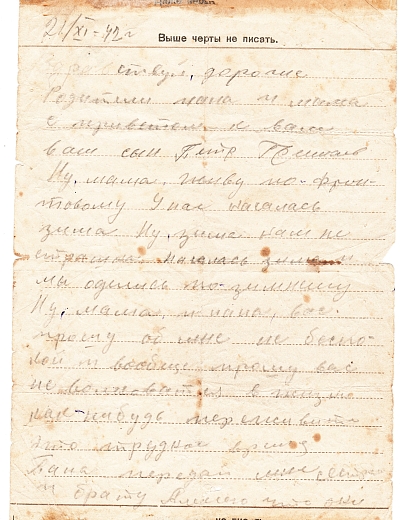 21/XI-42г
Выше черты не писать.
дорогие
Родители папа и мама
с приветом к вам
ваш сын Петр
Ну, мама, живу по-фрон-
товому У нас началась
зима Ну, зима нам не
страшна. Началась зима и
мы оделись по-зимнему
Ну, мама, и папа, вас
прошу об мне не беспо-
кой и вообще прошу вас
не волноваться в жизни
как-нибудь переживите
это трудное время
Папа передай мне
и брату что они